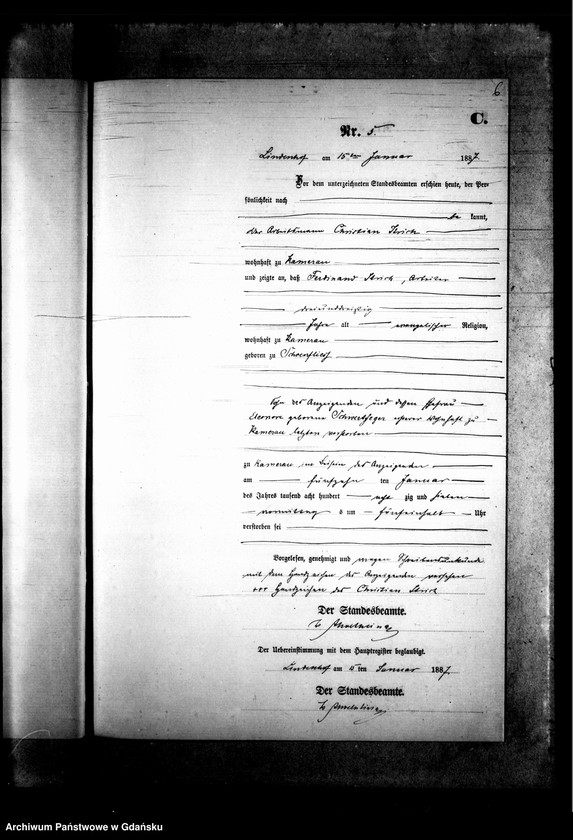 6
C.
Nr. 5.
Lindenhof am 15ten Januar 1887.
Vor dem unterzeichneten Standesbeamten erschien heute, der Per-
sönlichkeit nach
be kannt,
der Arbeitsmann Christian
wohnhaft zu Kamerau
und zeigte an, daß Ferdinand, Arbeiter
dreiunddreißig
Jahre alt evangelischer Religion,
wohnhaft zu Kamerau
geboren zu Schoenfließ
Sohn des Anzeigenden und dessen Ehefrau
Eleonore geborene wohnhaft zu
Kamerau verstorben
zu Kamerau im Beisein des Anzeigenden
am fünfzehn ten Januar
des Jahres tausend acht hundert acht zig und sieben
vormittag s um fünfeinhalb Uhr
verstorben sei
Vorgelesen, genehmigt und wegen Schreibensunkunde
mit dem Handzeichen des Anzeigenden versehen
+++ Handzeichen des Christian
Der Standesbeamte.
Der Uebereinstimmung mit dem Hauptregister beglaubigt.
Lindenhof am 15 ten Januar 1887.
Der Standesbeamte.
Archiwum Państwowe w Gdańsku